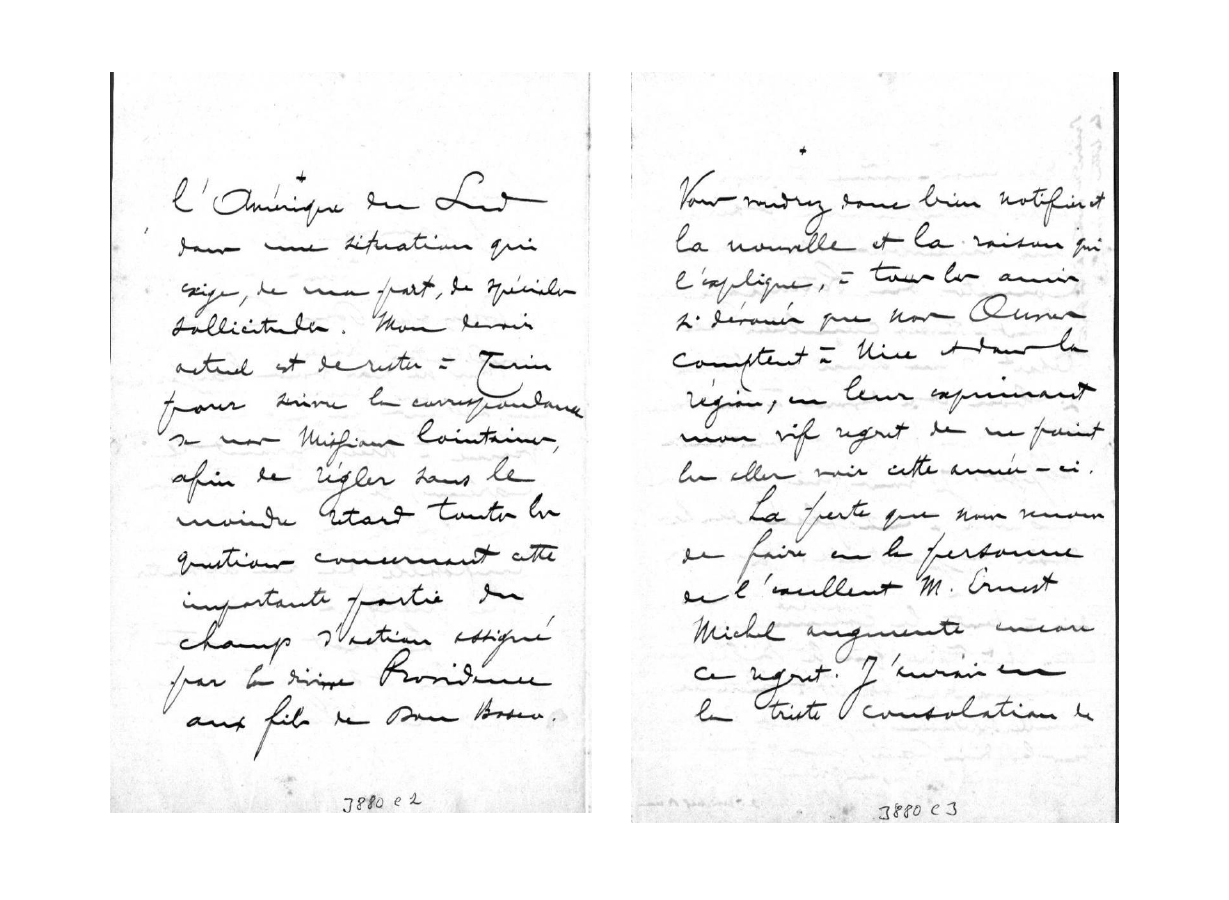 l'Amérique du Sud
dans une situation qui
exige, de ma part, de spéciales
sollicitudes. Mon devoir
actuel est de rester à Turin
pour suivre la correspondance
de nos Missions lointaines,
afin de régler sans le
moindre retard toutes les
questions concernant cette
importante partie du
champ d'action assigné
par la divine Providence
aux fils de Don Bosco.
3880 C 2
Vous voudrez donc bien notifier et
la nouvelle et la raison qui
l'explique, à tous les amis
si dévoués que nos Œuvres
comptent à Nice et dans la
région, en leur exprimant
mon vif regret de ne point
les aller voir cette année-ci.
La perte que nous venons
de faire en la personne
de l'excellent M. Ernest
Michel augmente encore
ce regret. J'aurais eu
la triste consolation de
3880 C 3